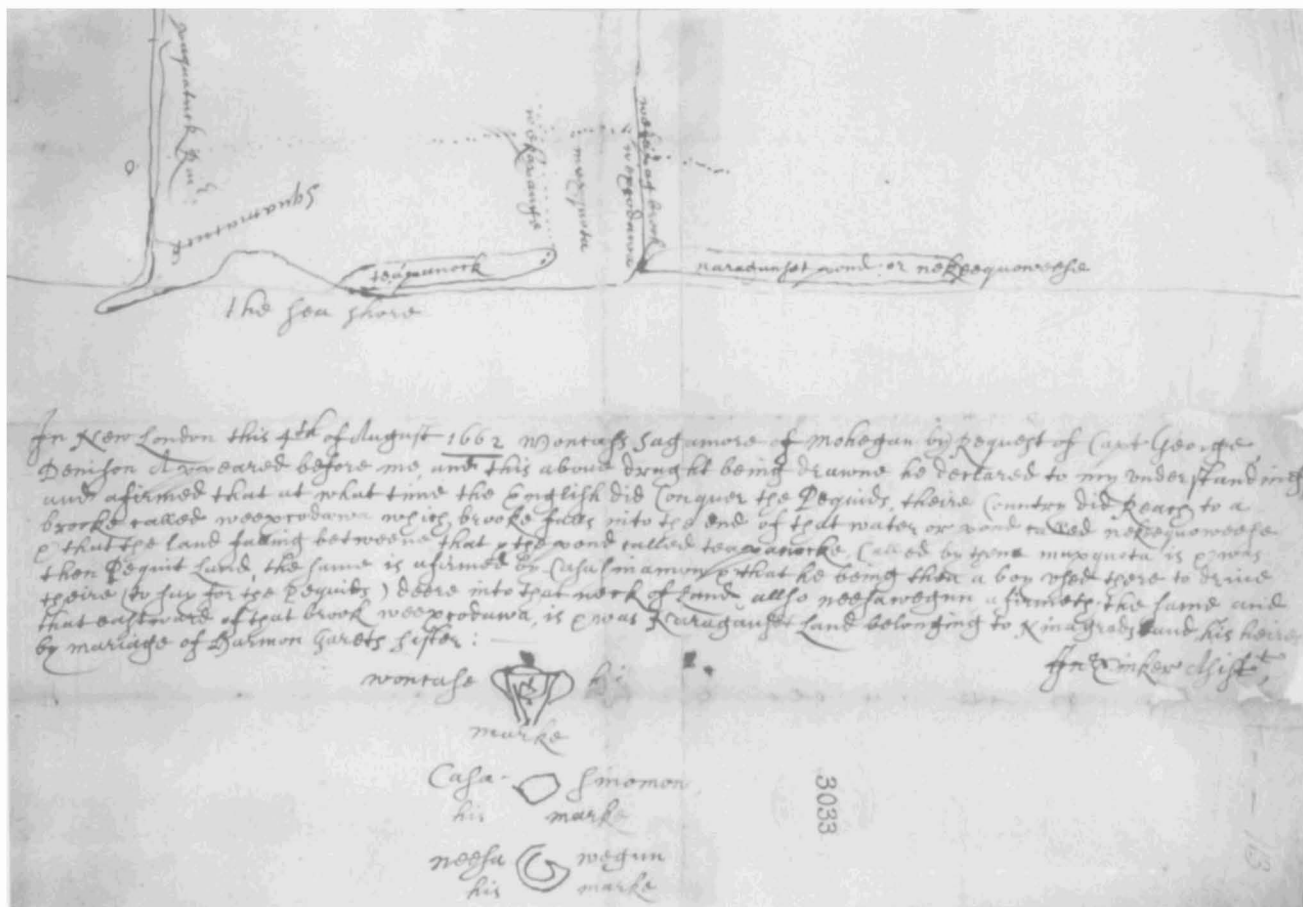 paquatuck River
squamacutk
wekapauge
muxquota
weexcodawa
wexcodawa brook
teapanock
naragunset pond or nekequoweese
the sea shore
In New London this 4th of August 1662 Wontass Sagamore of Mohegan by Request of Capt George
Denison Appeared before me and this above draught being drawne he declared to my understanding
and afirmed that at what time the English did Conquer the Pequids, theire Country did Reach to a
brooke called weexcodawa which brooke falls into the end of that water or pond called nekequoweese
& that the land falling betweene that & the pond called teapanocke, Called by them muxquota is & was
then Pequit Land, the same is afirmed by Casasinamon & that he being then a boy used there to drive
theire (to say for the Pequids) deere into that neck of Land allso neesawegun afirmeth the same and
that eastward of that brook weexcodawa, is & was Naragansett Land belonging to Ninagrads and his heires
by mariage of Harmon Garets sister:
Jn Tinker Asist
wontase his
marke
Casa- sinomon
his marke
neesa wegun
his marke
3033
13